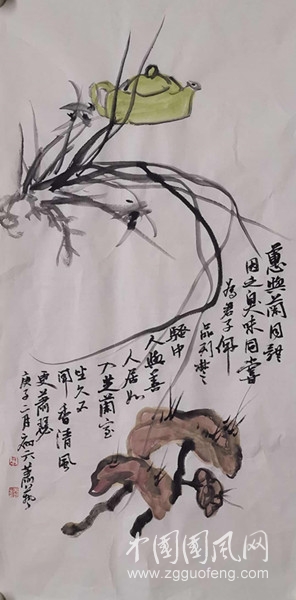 蕙與蘭同譜
因之臭味同
為君子佩
品列楚
騷中
人與善
人居如
入芝蘭室
坐久又
聞香清風
更蕭瑟
庚子二月初六蕭
中國國風网
www.zgguofeng.com